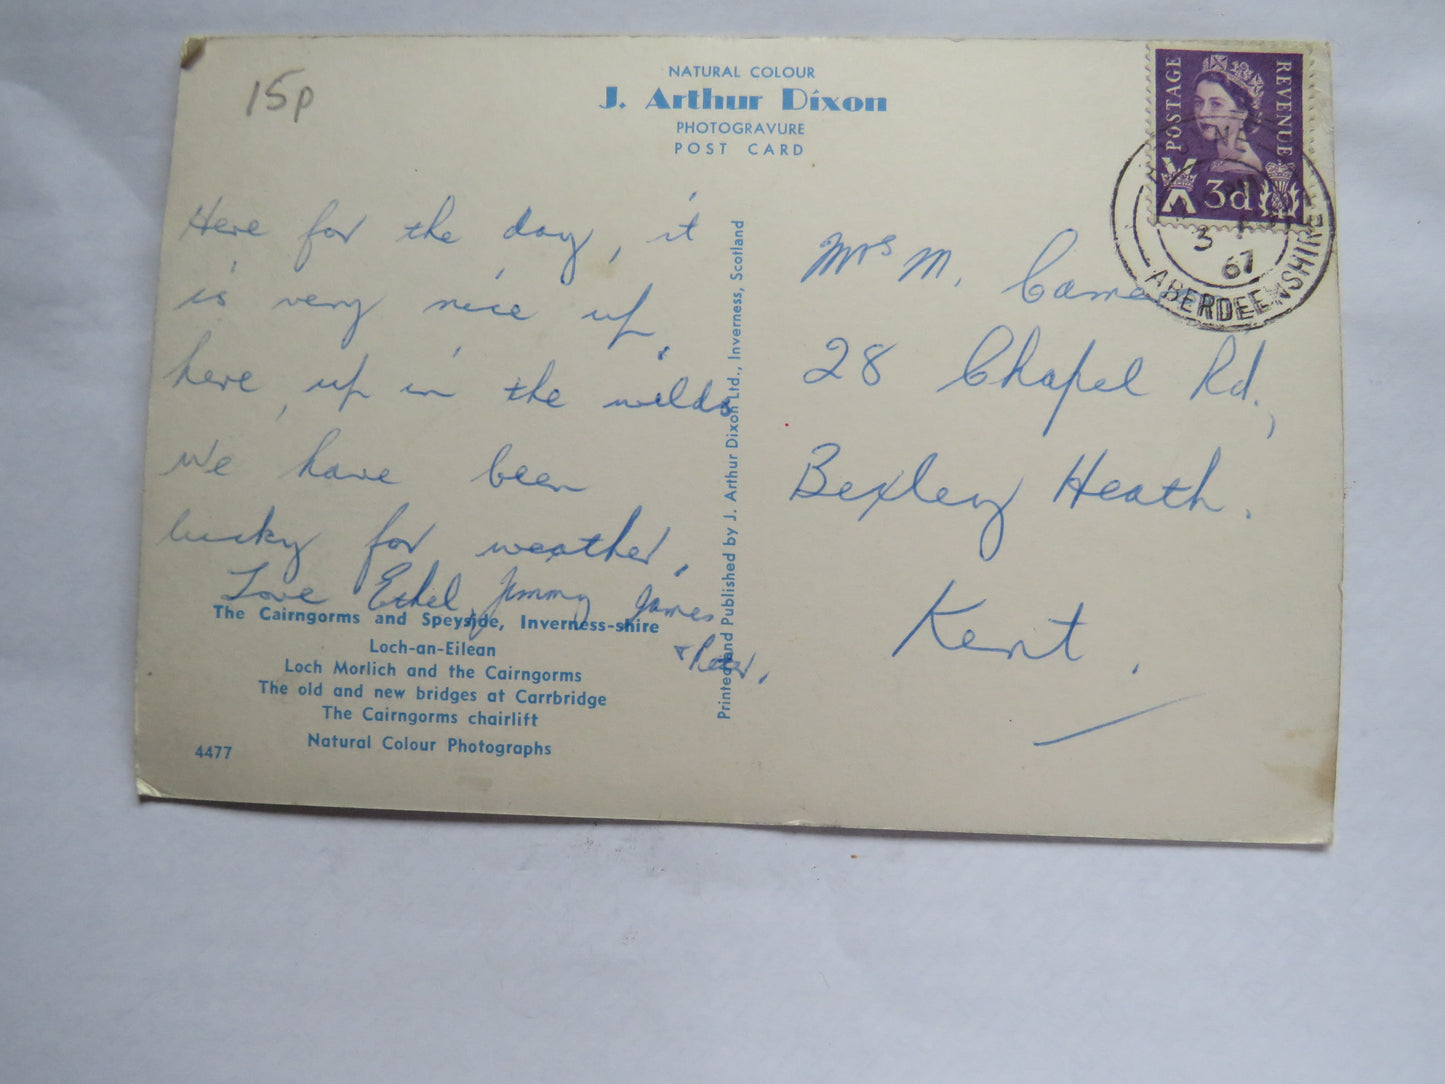 15p
NATURAL COLOUR
J. Arthur Dixon
PHOTOGRAVURE
POST CARD
POSTAGE
REVENUE
3d
3
67
ABERDEENSHIRE
Here for the day, it
is very nice up
here, up in the wilds.
We have been
lucky for weather.
Love Ethel, Jimmy James
& Peter.
The Cairngorms and Speyside, Inverness-shire
Loch-an-Eilean
Loch Morlich and the Cairngorms
The old and new bridges at Carrbridge
The Cairngorms chairlift
Natural Colour Photographs
4477
Printed and Published by J. Arthur Dixon Ltd., Inverness, Scotland
Mrs M.
28 Chapel Rd.,
Bexley Heath.
Kent.